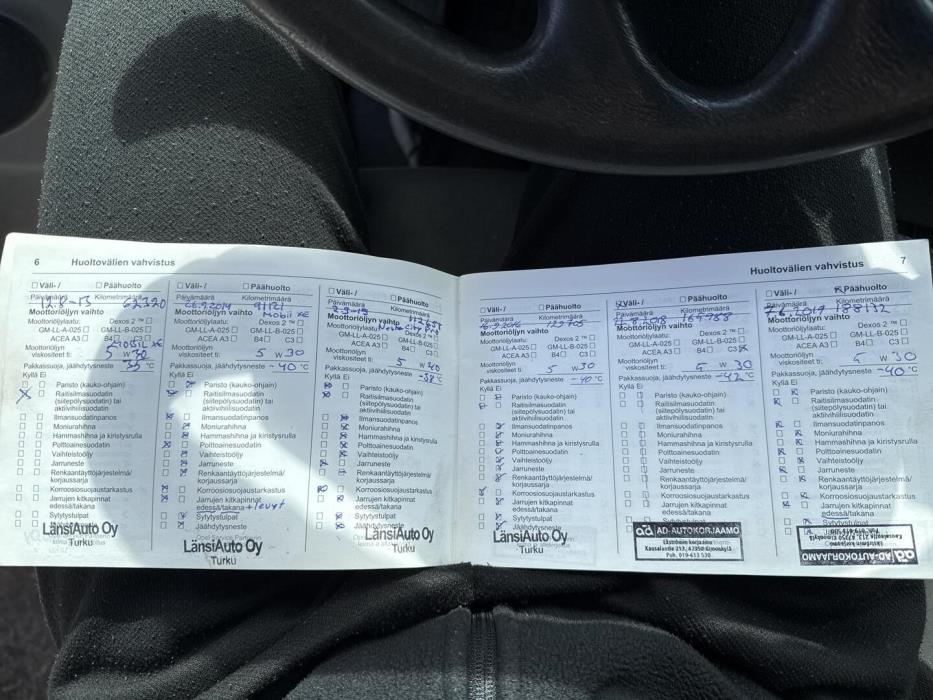 6 Huoltovälien vahvistus
Väli- / Päähuolto
Päivämäärä Kilometrimäärä
12.8-13 62320
Moottoriöljyn vaihto
Moottoriöljylaatu: Dexos 2 ™
GM-LL-A-025 GM-LL-B-025
ACEA A3 B4 C3
Moottoriöljyn
viskositeetti: 5 W 30
Pakkassuoja, jäähdytysneste -35 °C
Kyllä Ei
Paristo (kauko-ohjain)
Raitisilmasuodatin
(siitepölysuodatin) tai
aktiivihiilisuodatin
Ilmansuodatinpanos
Moniurahihna
Hammashihna ja kiristysrulla
Polttoainesuodatin
Vaihteistoöljy
Jarruneste
Renkaantäyttöjärjestelmä/
korjaussarja
Korroosiosuojaustarkastus
Jarrujen kitkapinnat
edessä/takana
Sytytystulpat
Jäähdytysneste
LänsiAuto Oy
Turku
Väli- / Päähuolto
Päivämäärä Kilometrimäärä
26.9.2014 91121
Mobil XE
Moottoriöljyn vaihto
Moottoriöljylaatu: Dexos 2 ™
GM-LL-A-025 GM-LL-B-025
ACEA A3 B4 C3
Moottoriöljyn
viskositeetti: 5 W 30
Pakkassuoja, jäähdytysneste -40 °C
Kyllä Ei
Paristo (kauko-ohjain)
Raitisilmasuodatin
(siitepölysuodatin) tai
aktiivihiilisuodatin
Ilmansuodatinpanos
Moniurahihna
Hammashihna ja kiristysrulla
Polttoainesuodatin
Vaihteistoöljy
Jarruneste
Renkaantäyttöjärjestelmä/
korjaussarja
Korroosiosuojaustarkastus
Jarrujen kitkapinnat
edessä/takana + levyt
Sytytystulpat
Jäähdytysneste
LänsiAuto Oy
Turku
Väli- / Päähuolto
Päivämäärä Kilometrimäärä
Moottoriöljyn vaihto
Moottoriöljylaatu: Dexos 2 ™
GM-LL-A-025 GM-LL-B-025
ACEA A3 B4 C3
Moottoriöljyn
viskositeetti: 5 W 40
Pakkassuoja, jäähdytysneste -38 °C
Kyllä Ei
Paristo (kauko-ohjain)
Raitisilmasuodatin
(siitepölysuodatin) tai
aktiivihiilisuodatin
Ilmansuodatinpanos
Moniurahihna
Hammashihna ja kiristysrulla
Polttoainesuodatin
Vaihteistoöljy
Jarruneste
Renkaantäyttöjärjestelmä/
korjaussarja
Korroosiosuojaustarkastus
Jarrujen kitkapinnat
edessä/takana
Sytytystulpat
Jäähdytysneste
LänsiAuto Oy
Turku
Huoltovälien vahvistus 7
Väli- / Päähuolto
Päivämäärä Kilometrimäärä
129705
Moottoriöljyn vaihto
Moottoriöljylaatu: Dexos 2 ™
GM-LL-A-025 GM-LL-B-025
ACEA A3 B4 C3
Moottoriöljyn
viskositeetti: 5 W 30
Pakkassuoja, jäähdytysneste -40 °C
Kyllä Ei
Paristo (kauko-ohjain)
Raitisilmasuodatin
(siitepölysuodatin) tai
aktiivihiilisuodatin
Ilmansuodatinpanos
Moniurahihna
Hammashihna ja kiristysrulla
Polttoainesuodatin
Vaihteistoöljy
Jarruneste
Renkaantäyttöjärjestelmä/
korjaussarja
Korroosiosuojaustarkastus
Jarrujen kitkapinnat
edessä/takana
Sytytystulpat
Jäähdytysneste
LänsiAuto Oy
Turku
Väli- / Päähuolto
Päivämäärä Kilometrimäärä
Moottoriöljyn vaihto
Moottoriöljylaatu: Dexos 2 ™
GM-LL-A-025 GM-LL-B-025
ACEA A3 B4 C3
Moottoriöljyn
viskositeetti: 5 W 30
Pakkassuoja, jäähdytysneste -42 °C
Kyllä Ei
Paristo (kauko-ohjain)
Raitisilmasuodatin
(siitepölysuodatin) tai
aktiivihiilisuodatin
Ilmansuodatinpanos
Moniurahihna
Hammashihna ja kiristysrulla
Polttoainesuodatin
Vaihteistoöljy
Jarruneste
Renkaantäyttöjärjestelmä/
korjaussarja
Korroosiosuojaustarkastus
Jarrujen kitkapinnat
edessä/takana
Sytytystulpat
ad AD-AUTOKORJAAMO
Kausalantie 213, 47350 Elimäki
Puh. 019-613 530
Väli- / Päähuolto
Päivämäärä Kilometrimäärä
7.6.2019 188132
Moottoriöljyn vaihto
Moottoriöljylaatu: Dexos 2 ™
GM-LL-A-025 GM-LL-B-025
ACEA A3 B4 C3
Moottoriöljyn
viskositeetti: 5 W 30
Pakkassuoja, jäähdytysneste -40 °C
Kyllä Ei
Paristo (kauko-ohjain)
Raitisilmasuodatin
(siitepölysuodatin) tai
aktiivihiilisuodatin
Ilmansuodatinpanos
Moniurahihna
Hammashihna ja kiristysrulla
Polttoainesuodatin
Vaihteistoöljy
Jarruneste
Renkaantäyttöjärjestelmä/
korjaussarja
Korroosiosuojaustarkastus
Jarrujen kitkapinnat
edessä/takana
Sytytystulpat
ad AD-AUTOKORJAAMO